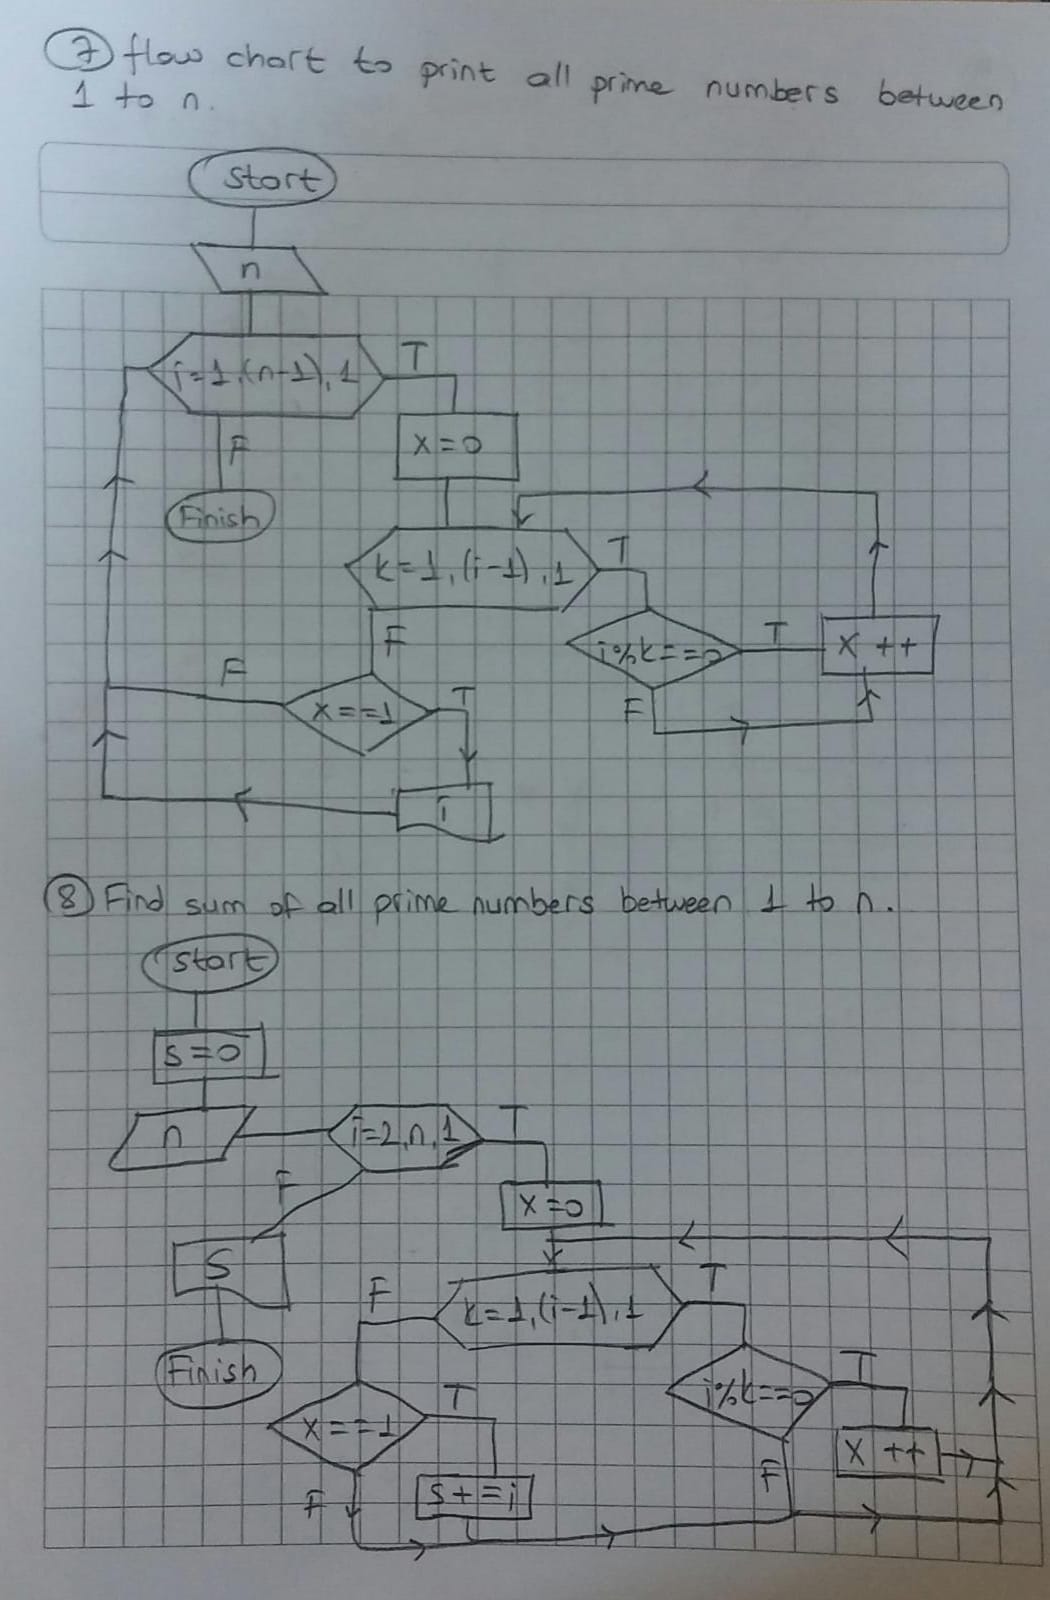 7 flow chart to print all prime numbers between
1 to n.
Start
n
i=1,(n-1),1
T
F
x=0
Finish
k=1,(i-1),1
T
F
i%k==0
T
x ++
F
F
x==1
T
i
8 Find sum of all prime numbers between 1 to n.
Start
s=0
n
i=2,n,1
T
F
x=0
S
k=1,(i-1),1
T
F
Finish
i%k==0
T
x ++
F
x==1
T
F
s+=i